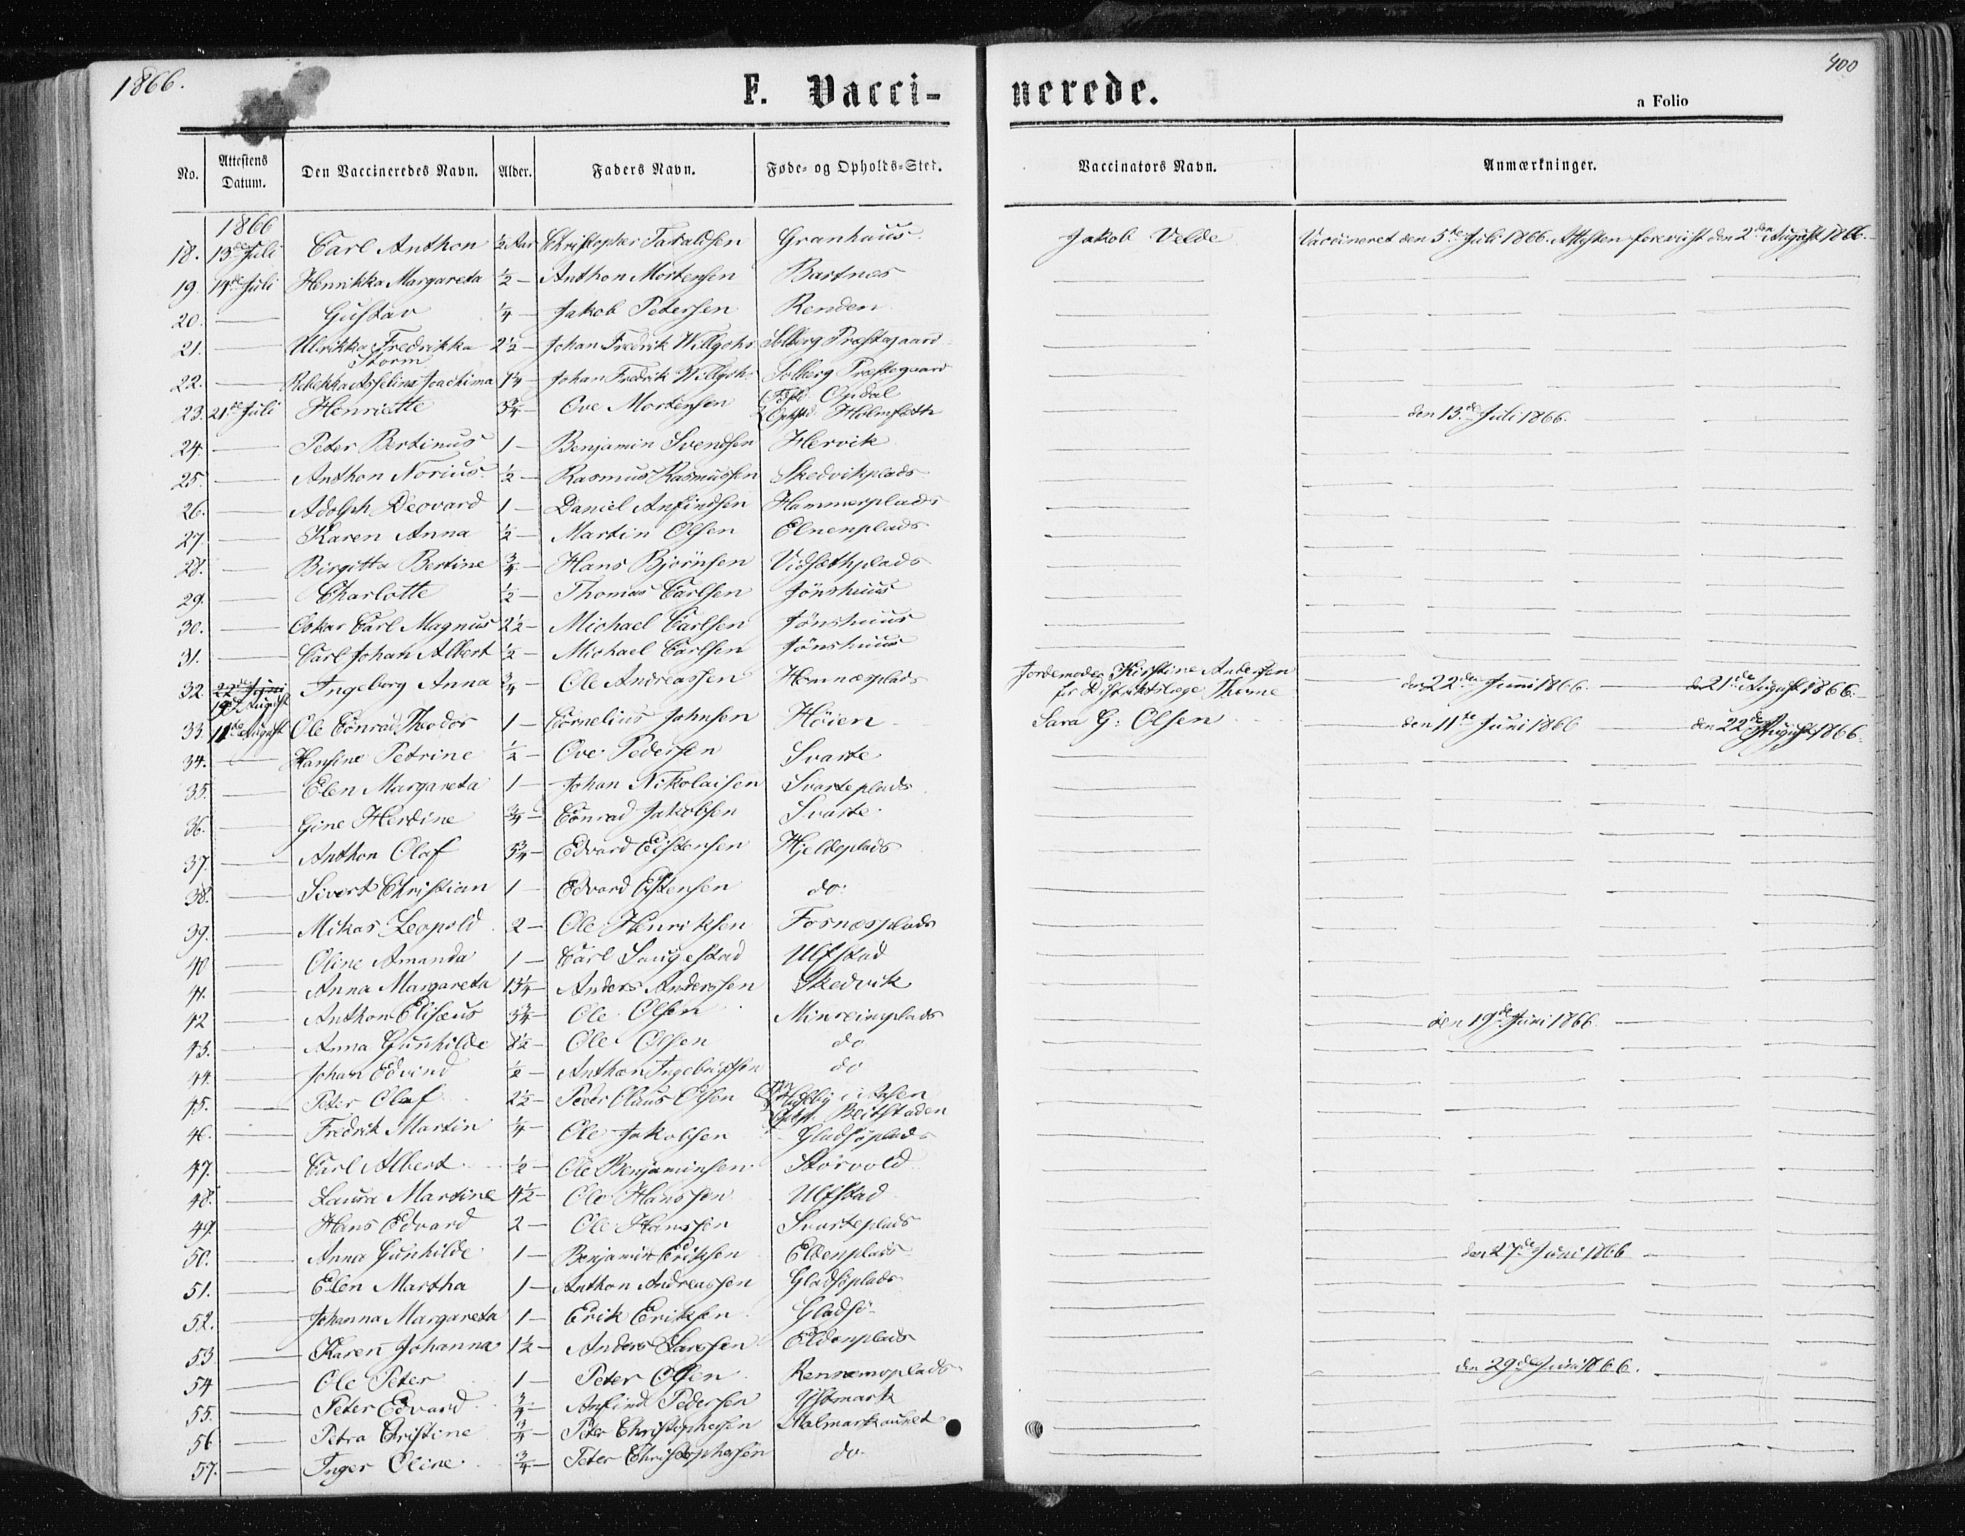 1866.
F. Vacci-
nerede.
400
a Folio
No.
Attestens Datum.
Den Vaccineredes Navn.
Alder.
Faders Navn.
Føde- og Opholds-Sted.
Vaccinators Navn.
Anmærkninger.
1866
18. 13de Juli Carl Anthon ½ Aar Christopher Granhaus Jakob Velde Vaccineret den 5te Juli 1866. Attesten foreviist den 2den August 1866.
19. 14de Juli Henrikka Margareta ½ — Anthon Mortensen Bartnes
20. — Gustav ¼ — Jakob Petersen Renden
21. — Ulrikka Fredrikka Storm 2½ — Johan Fredrik Willgohs Solberg Præstegaard
22. — Rebekka Joachima — Johan Fredrik Willgohs Solberg Præstegaard
23. 21de Juli Henriette ¾ — Ove Mortensen den 13de Juli 1866.
24. — Peter Bertinus 1 — Benjamin Svendsen Hervik
25. — Anthon Norius ½ — Rasmus Rasmussen Skedvikplads
26. — Adolph Deovard 1 — Daniel Anfindsen Hammerplads
27. — Karen Anna ½ — Martin Olsen Elnenplads
28. — Birgitta Bertine ¾ — Hans Bjørnsen Vidsethplads
29. — Charlotte ½ — Thomas Carlsen Jønshuus
30. — Oskar Carl Magnus 2½ — Michael Carlsen Jønshuus
31. — Carl Johan Albert ½ — Michael Carlsen Jønshuus
32. 22de Juni 19de August Ingeborg Anna ¾ — Ole Andreassen Hamnesplads Jordemoder Kirstine Andersen for Distriktslæge Thome den 22de Juni 1866. — den 21de August 1866.
33. 11te August Ole Conrad Theodor 1 — Cornelius Johnsen Høien Sara G: Olsen den 11te Juni 1866 — den 22de August 1866.
34. — Hansine Petrine ½ — Ove Pedersen Svarte
35. — Elen Margareta 1 — Johan Nikolaisen Svarteplads
36. — Gine Herdine ¾ — Conrad Jakobsen Svarte.
37. — Anthon Olaf — Edvard Eistensen Hjeldeplads
38. — Sivert Christian 1 — Edvard Eistensen do.
39. — Mikas Leopold 2 — Ole Henriksen Fosnesplads
40 — Oline Amanda 1 — Carl Saugestad Ulfstad
41. — Anna Margareta — Anders Anderssen Skedvik
42 — Anthon Eliseus — Ole Olsen Minreimplads den 19de Juni 1866.
43. — Anna Gunhilde — Ole Olsen do
44. — Johan Edvind ½ — Anthon Ingebrigtsen do
45. — Peter Olaf 2½ — Peder Claus Olsen i Aasen Beitstaden
46. — Fredrik Martin ¼ — Ole Jakobsen Gladsøplads
47. — Carl Albert ½ — Ole Benjaminsen Størvold
48. — Laura Martine 4½ — Ole Hanssen Ulfstad
49. — Hans Edvard 2 — Ole Hanssen Svarteplads
50. — Anna Gunhilde 1 — Benjamin Eriksen Eldenplads den 27de Juni 1866
51. — Elen Martha 1 — Anthon Andreassen Gladsøplads
52. — Johanna Margareta 1 — Erik Eriksen Gladsø
53 — Karen Johanna 1½ — Anders Larssen Eldenplads
54 — Ole Peter 1 — Peter Olsen Rennemoplads den 29de Juni 1866.
55. — Peter Edvard ¾ — Anfind Pedersen Østmark
56 — Petra Christine ¾ — Peter Christophersen
57. — Inger Oline ¾ — Peter Christophersen do